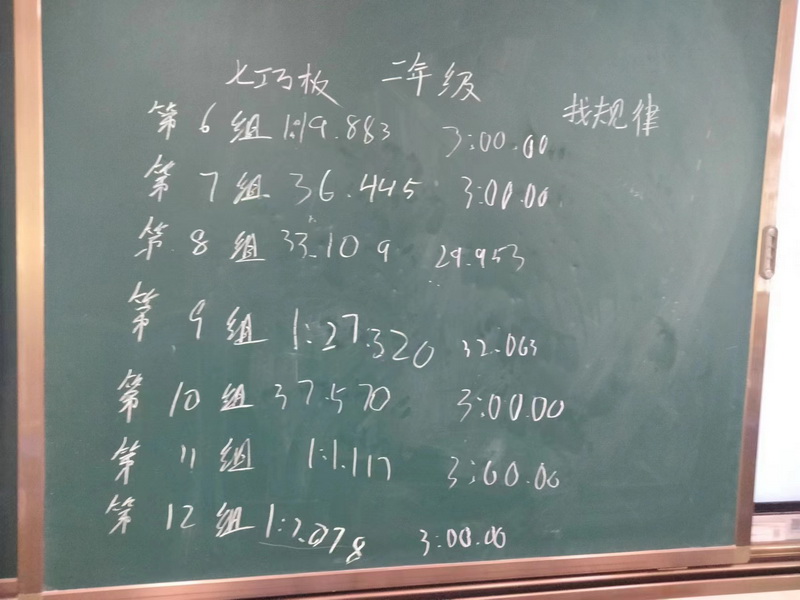 七巧板 二年级
找规律
第6组 1:19.883 3:00.00
第7组 36.445 3:00.00
第8组 33.109 29.953
第9组 1:27.320 32.063
第10组 37.570 3:00.00
第11组 1:1.117 3:00.00
第12组 3:00.00